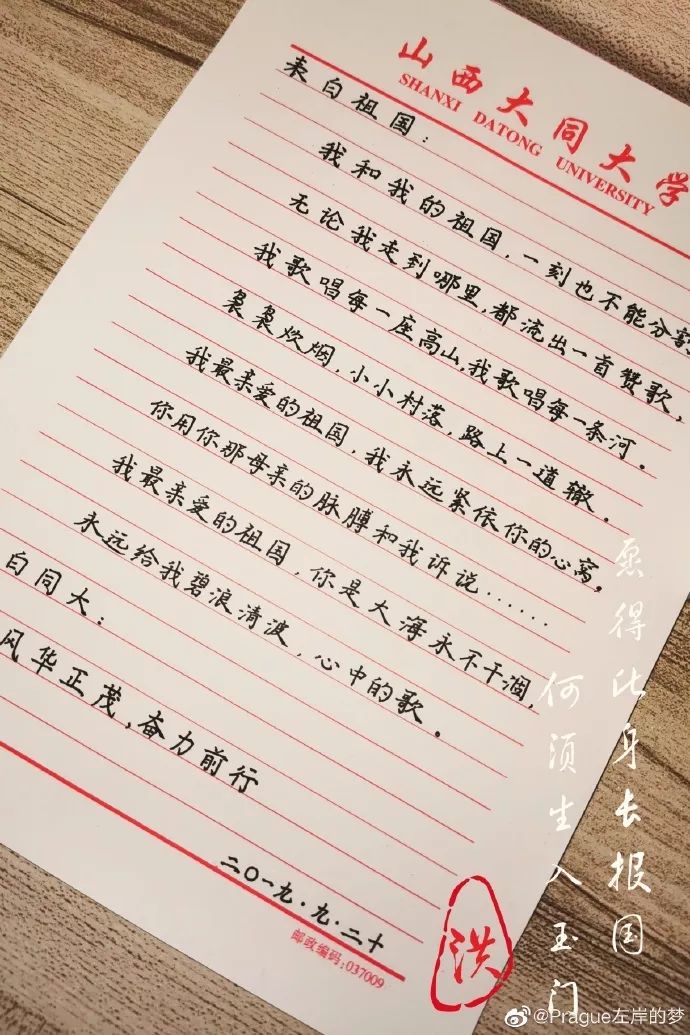 山西大同大学
SHANXI DATONG UNIVERSITY
表白祖国：
我和我的祖国，一刻也不能分割
无论我走到哪里，都流出一首赞歌，
我歌唱每一座高山，我歌唱每一条河。
袅袅炊烟，小小村落，路上一道辙。
我最亲爱的祖国，我永远紧依你的心窝，
你用你那母亲的脉膊和我诉说……
我最亲爱的祖国，你是大海永不干涸，
永远给我碧浪清波，心中的歌。
白同大：
风华正茂，奋力前行
二〇一九.九.二十
邮政编码：037009
洪
愿得此身长报国
何须生入玉门
@Prague左岸的梦